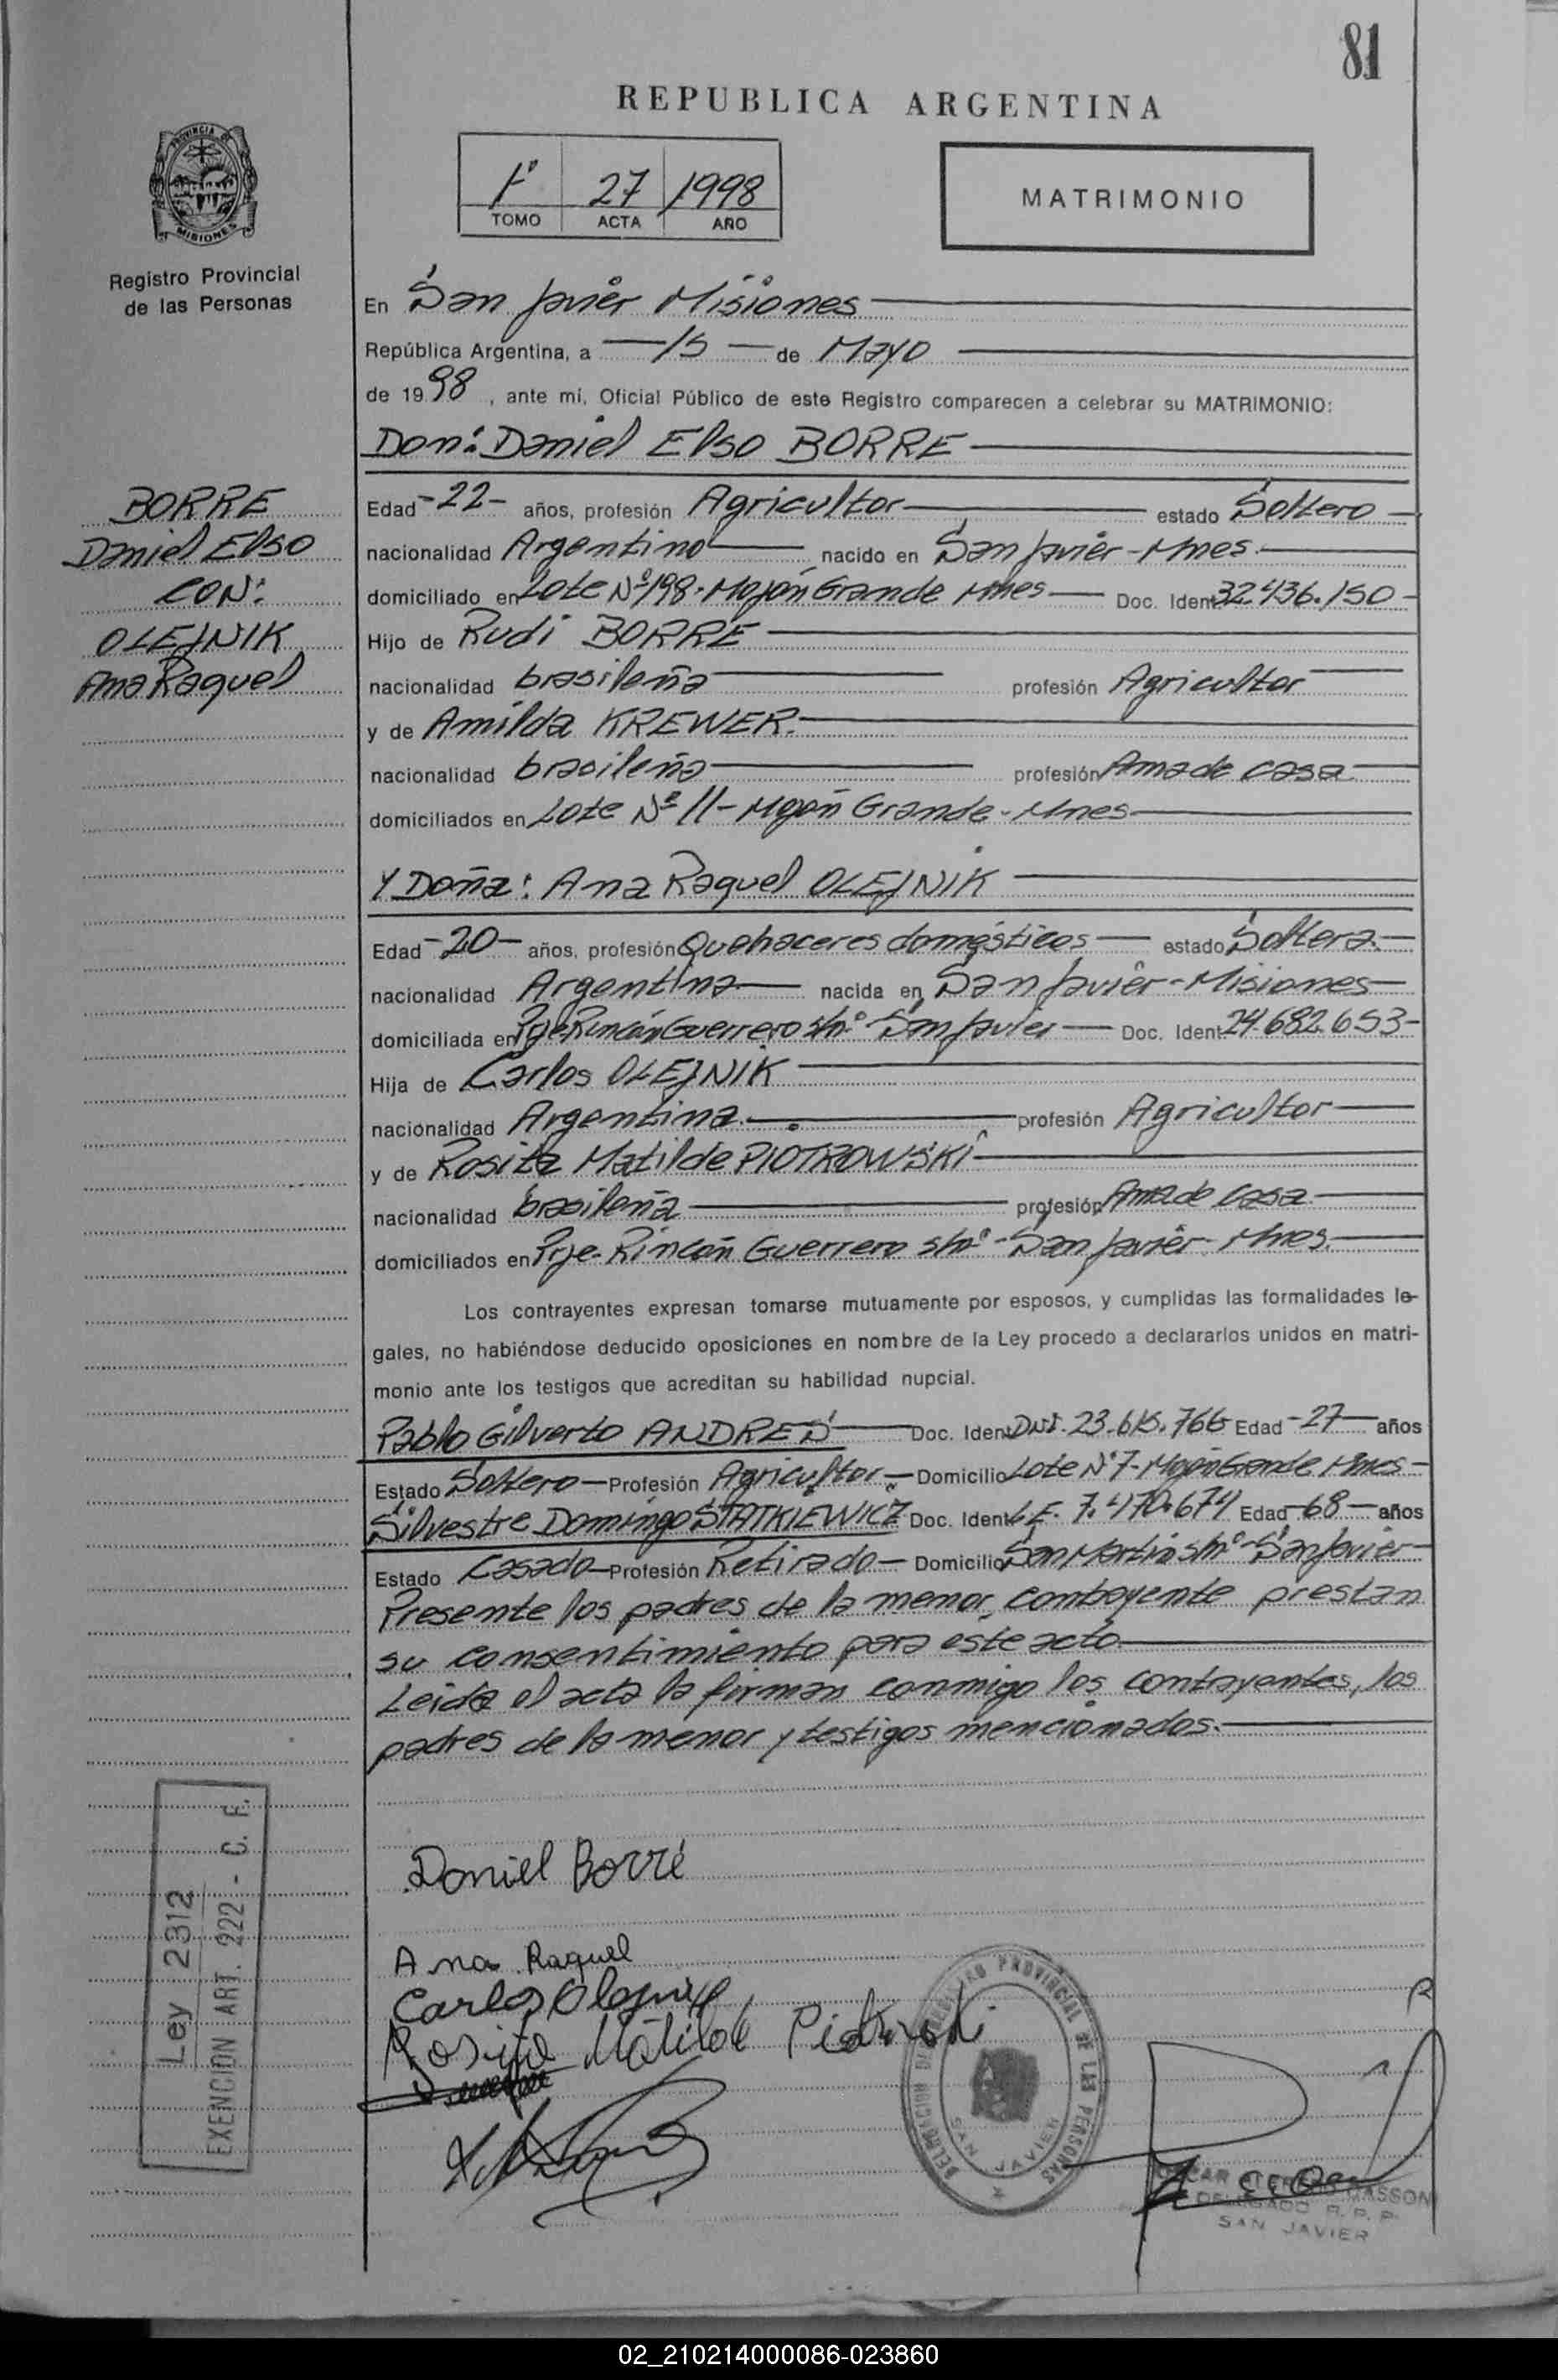 81
REPUBLICA ARGENTINA
PROVINCIA DE
MISIONES
Registro Provincial
de las Personas
1º 27 1998
TOMO ACTA AÑO
MATRIMONIO
En San Javier Misiones
República Argentina, a 15 de Mayo
de 1998, ante mi, Oficial Público de este Registro comparecen a celebrar su MATRIMONIO:
Don: Daniel Elso BORRE
BORRE
Daniel Elso
CON:
OLEJNIK
Ana Raquel
Edad -22- años, profesión Agricultor estado Soltero
nacionalidad Argentino nacido en San Javier - Mnes.
domiciliado en Lote Nº 198 - Mojón Grande Mnes Doc. Ident. 32.436.150
Hijo de Rudi BORRE
nacionalidad brasileña profesión Agricultor
y de Amilda KREWER.
nacionalidad brasileña profesión Ama de casa
domiciliados en Lote Nº 11 - Mojón Grande - Mnes
Y Doña: Ana Raquel OLEJNIK
Edad -20- años, profesión Quehaceres domésticos estado Soltera.
nacionalidad Argentina nacida en San Javier - Misiones
domiciliada en Pje Rincón Guerrero s/nº San Javier Doc. Ident. 24.682.653-
Hija de Carlos OLEJNIK
nacionalidad Argentina. profesión Agricultor
y de Rosita Matilde PIOTROWSKI
nacionalidad brasileña profesión Ama de casa
domiciliados en Pje. Rincón Guerrero s/nº - San Javier - Mnes.
Los contrayentes expresan tomarse mutuamente por esposos, y cumplidas las formalidades le-
gales, no habiéndose deducido oposiciones en nombre de la Ley procedo a declararlos unidos en matri-
monio ante los testigos que acreditan su habilidad nupcial.
Pablo Gilverto ANDRES Doc. Ident. DNI. 23.615.766 Edad -27- años
Estado Soltero Profesión Agricultor Domicilio Lote Nº 7 - Mojón Grande Mnes
Silvestre Domingo STATKIEWICZ Doc. Ident. L.E. 7.470.674 Edad -68- años
Estado Casado Profesión Retirado Domicilio San Martin s/nº - San Javier
Presente los padres de la menor, contrayente prestan
su consentimiento para este acto.
Leida el acta la firman conmigo los contrayentes, los
padres de la menor y testigos mencionados.
Ley 2312
EXENCION ART. 222 - C. F.
Daniel Borré
Ana Raquel
Carlos Olejnik
Rosita Matilde Piotrowski
REGISTRO PROVINCIAL DE LAS PERSONAS
SAN JAVIER
MASSON
DELEGADO R. P. P.
SAN JAVIER
02_210214000086-023860